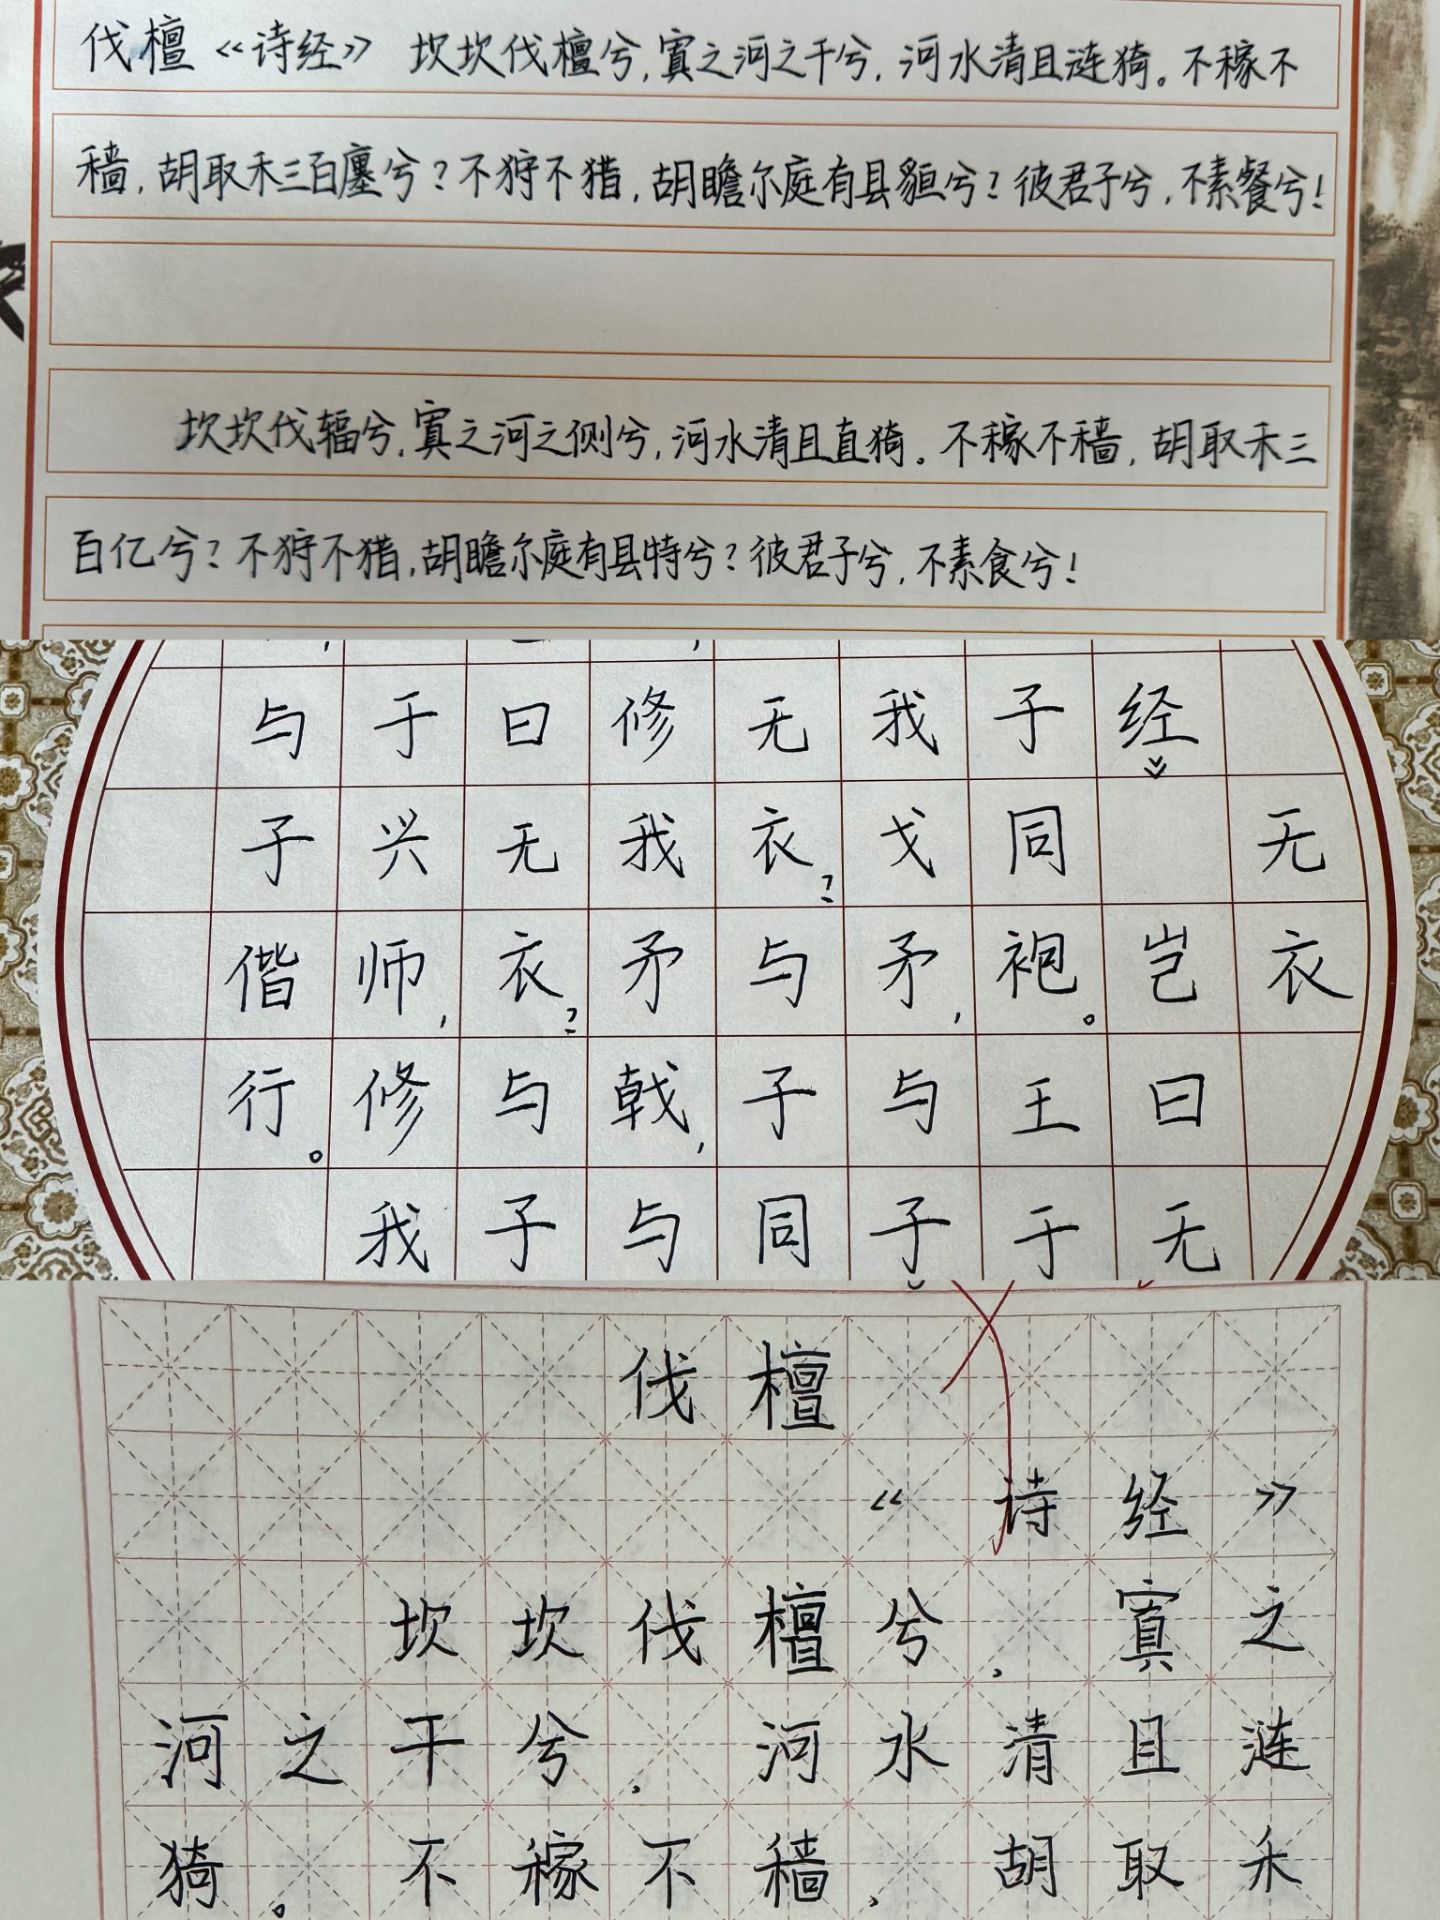 伐檀《诗经》 坎坎伐檀兮,寘之河之干兮,河水清且涟猗。不稼不
穑,胡取禾三百廛兮?不狩不猎,胡瞻尔庭有县貆兮?彼君子兮,不素餐兮!
坎坎伐辐兮,寘之河之侧兮,河水清且直猗。不稼不穑,胡取禾三
百亿兮?不狩不猎,胡瞻尔庭有县特兮?彼君子兮,不素食兮!
无衣
经》岂曰无
子同袍。王于
我戈矛,与子
无衣?与子同
修我矛戟,与
曰无衣?与子
于兴师,修我
与子偕行。
伐檀
《诗经》
坎坎伐檀兮,寘之
河之干兮,河水清且涟
猗。不稼不穑,胡取禾